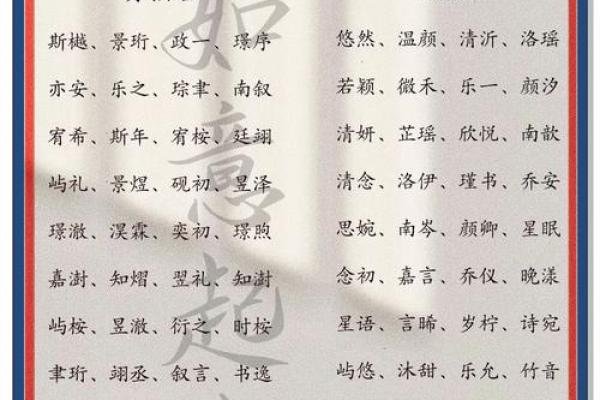 斯樾、景珩、政一、璟序
亦安、乐之、琮聿、南叙
宥希、斯年、宥桉、廷翊
屿礼、景煜、砚初、昱泽
璟澈、淏霖、奕初、璟煦
嘉澍、知熠、翌礼、知澍
屿桉、昱澈、衍之、时桉
聿珩、翊丞、叙言、书逸
悠然、温颜、清沂、洛瑶
若颖、微禾、乐一、颜汐
清妍、芷瑶、欣悦、南歆
清念、洛伊、瑾书、乔安
思婉、南岑、颜卿、星眠
念初、嘉言、乔仪、晚漾
星语、言晞、岁柠、诗宛
屿悠、沐甜、乐允、竹音
如意起